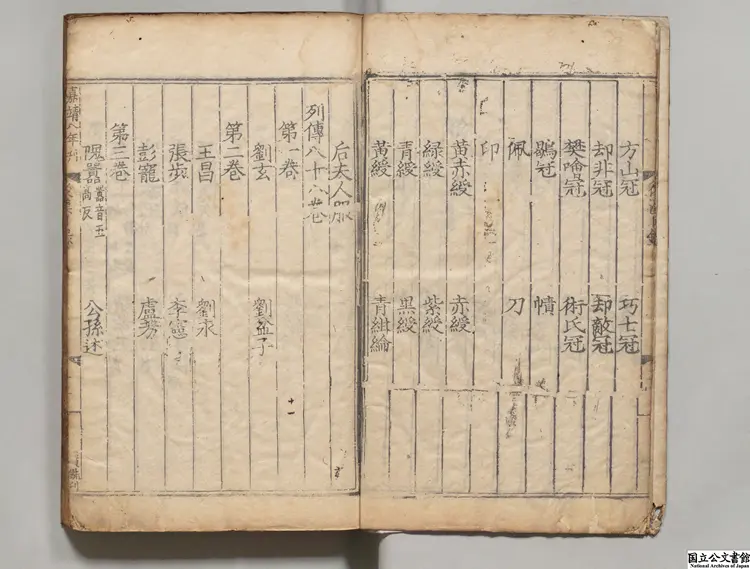 方山冠 巧士冠
却非冠 却敵冠
樊噲冠 術氏冠
鶡冠 幘
佩 刀
印
黃赤綬 赤綬
綠綬 紫綬
青綬 黑綬
黃綬 青紺綸
后夫人服
列傳八十八卷
第一卷
劉玄 劉盆子
第二卷
王昌 劉永
張步 李憲
彭寵 盧芳
第三卷
隗囂 囂音五高反 公孫述
嘉靖八年刊
国立公文書館
National Archives of Japan